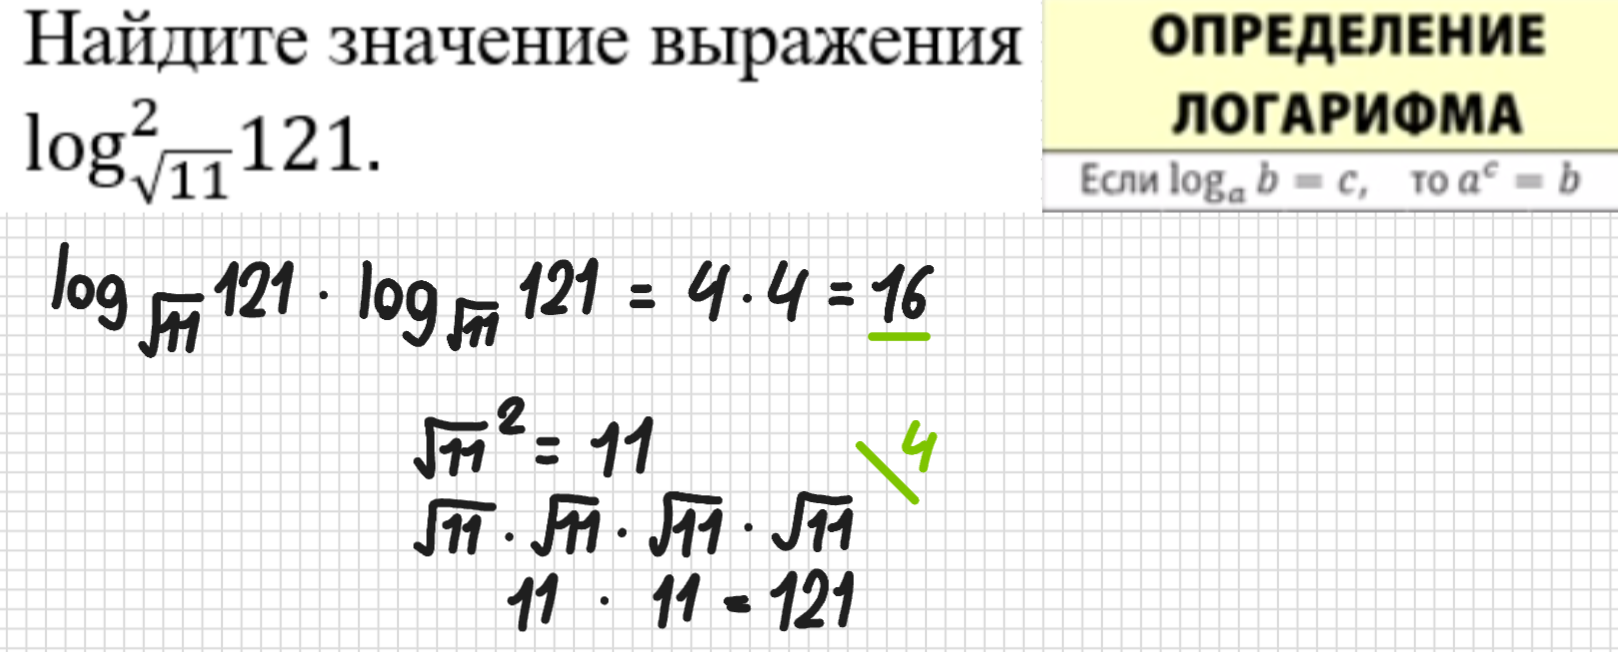 Найдите значение выражения
log²_√11 121.
ОПРЕДЕЛЕНИЕ
ЛОГАРИФМА
Если logₐ b = c, то aᶜ = b
log_√11 121 · log_√11 121 = 4 · 4 = 16
√11² = 11
4
√11 · √11 · √11 · √11
11 · 11 = 121